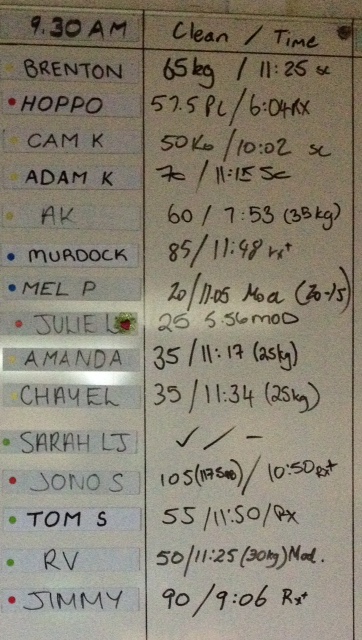 9.30 AM Clean / Time
BRENTON 65kg / 11:25 sc
HOPPO 57.5 PL / 6:04 RX
CAM K 50KG / 10:02 sc
ADAM K 70 / 11:15 Sc
AK 60 / 7:53 (35kg)
MURDOCK 85 / 11:48 rx+
MEL P 20 / 11:05 Mod (20-15)
JULIE L 25 5:56 MOD
AMANDA 35 / 11:17 (25kg)
CHAYEL 35 / 11:34 (25kg)
SARAH LJ ✓ / -
JONO S 105 / 10:50 Rx+
TOM S 55 / 11:50 / RX
RV 50 / 11:25 (30kg) Mod.
JIMMY 90 / 9:06 Rx+